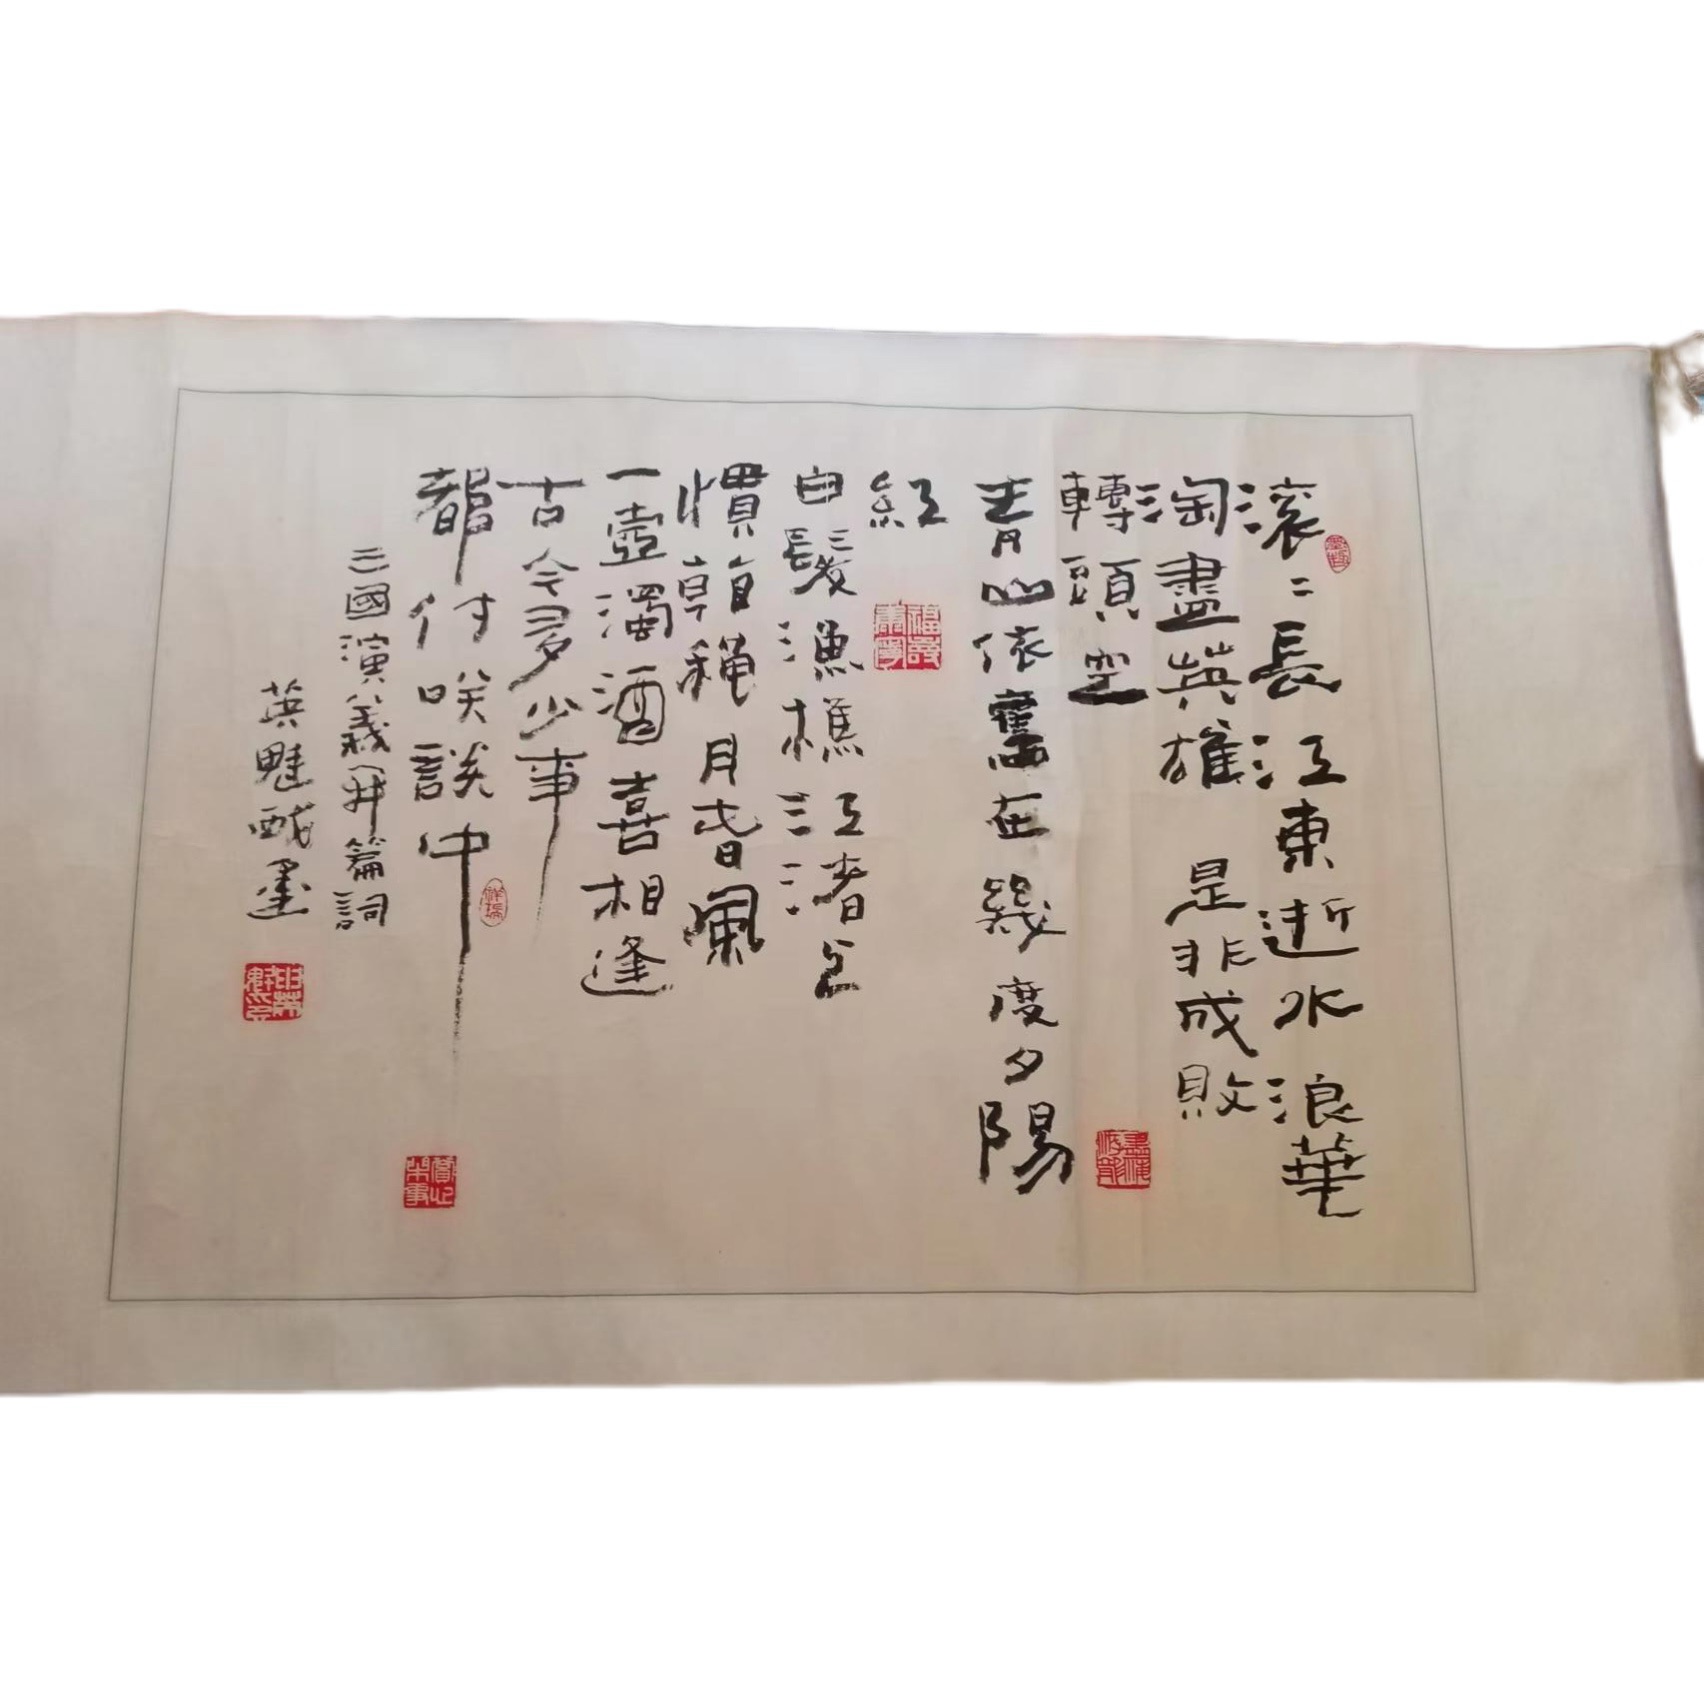 滚〻長江東逝水浪華
淘盡英雄是非成敗
轉頭空
青山依舊在幾度夕陽
紅
白髮漁樵江渚上
慣看秋月春風
一壺濁酒喜相逢
古今多少事
都付咲談中
三國演義開篇詞
英魁醎墨